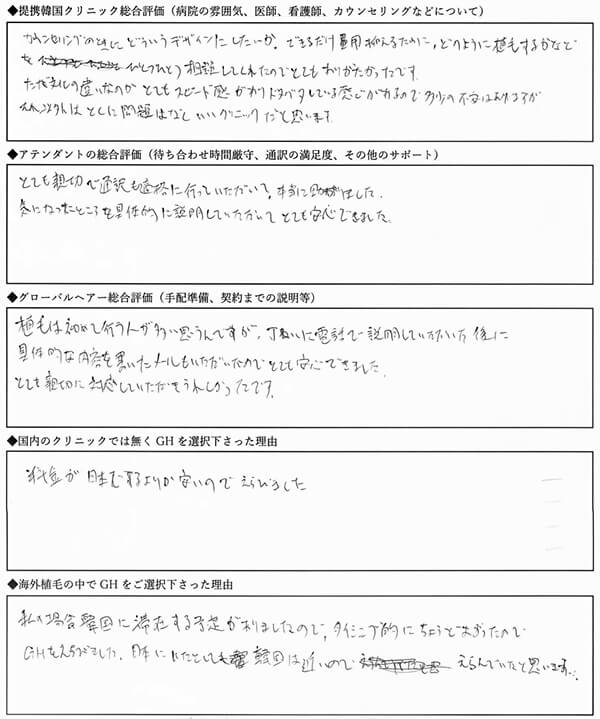 ◆提携韓国クリニック総合評価（病院の雰囲気、医師、看護師、カウンセリングなどについて）
カウンセリングのときにどういうデザインにしたいか。できるだけ費用抑えるために、どのように植毛するかなど
を ひとつひとつ相談してくれたのでとてもありがたかったです。
ただ文化の違いなのか とてもスピード感があり バタバタしている感じがあるので多少の不安はありますが
それ以外はとくに問題はなく いいクリニックだと思います。
◆アテンダントの総合評価（待ち合わせ時間厳守、通訳の満足度、その他のサポート）
とても親切で通訳も適格に行っていただいて、本当に助かりました。
気になったところを具体的に説明していただいて とても安心できました。
◆グローバルヘアー総合評価（手配準備、契約までの説明等）
植毛は初めて行う人が多い思うんですが、丁ねいに電話で説明していただいた後に
具体的な内容を書いたメールもいただいたのでとても安心できました。
とても親切に対応していただきうれしかったです。
◆国内のクリニックでは無く GH を選択下さった理由
料金が日本でするよりか安いので えらびました
◆海外植毛の中で GH をご選択下さった理由
私の場合韓国に滞在する予定がありましたので、タイミング的にちょうどよかったので
GHをえらびました。日本にいたとしても 韓国は近いので えらんでいたと思います。